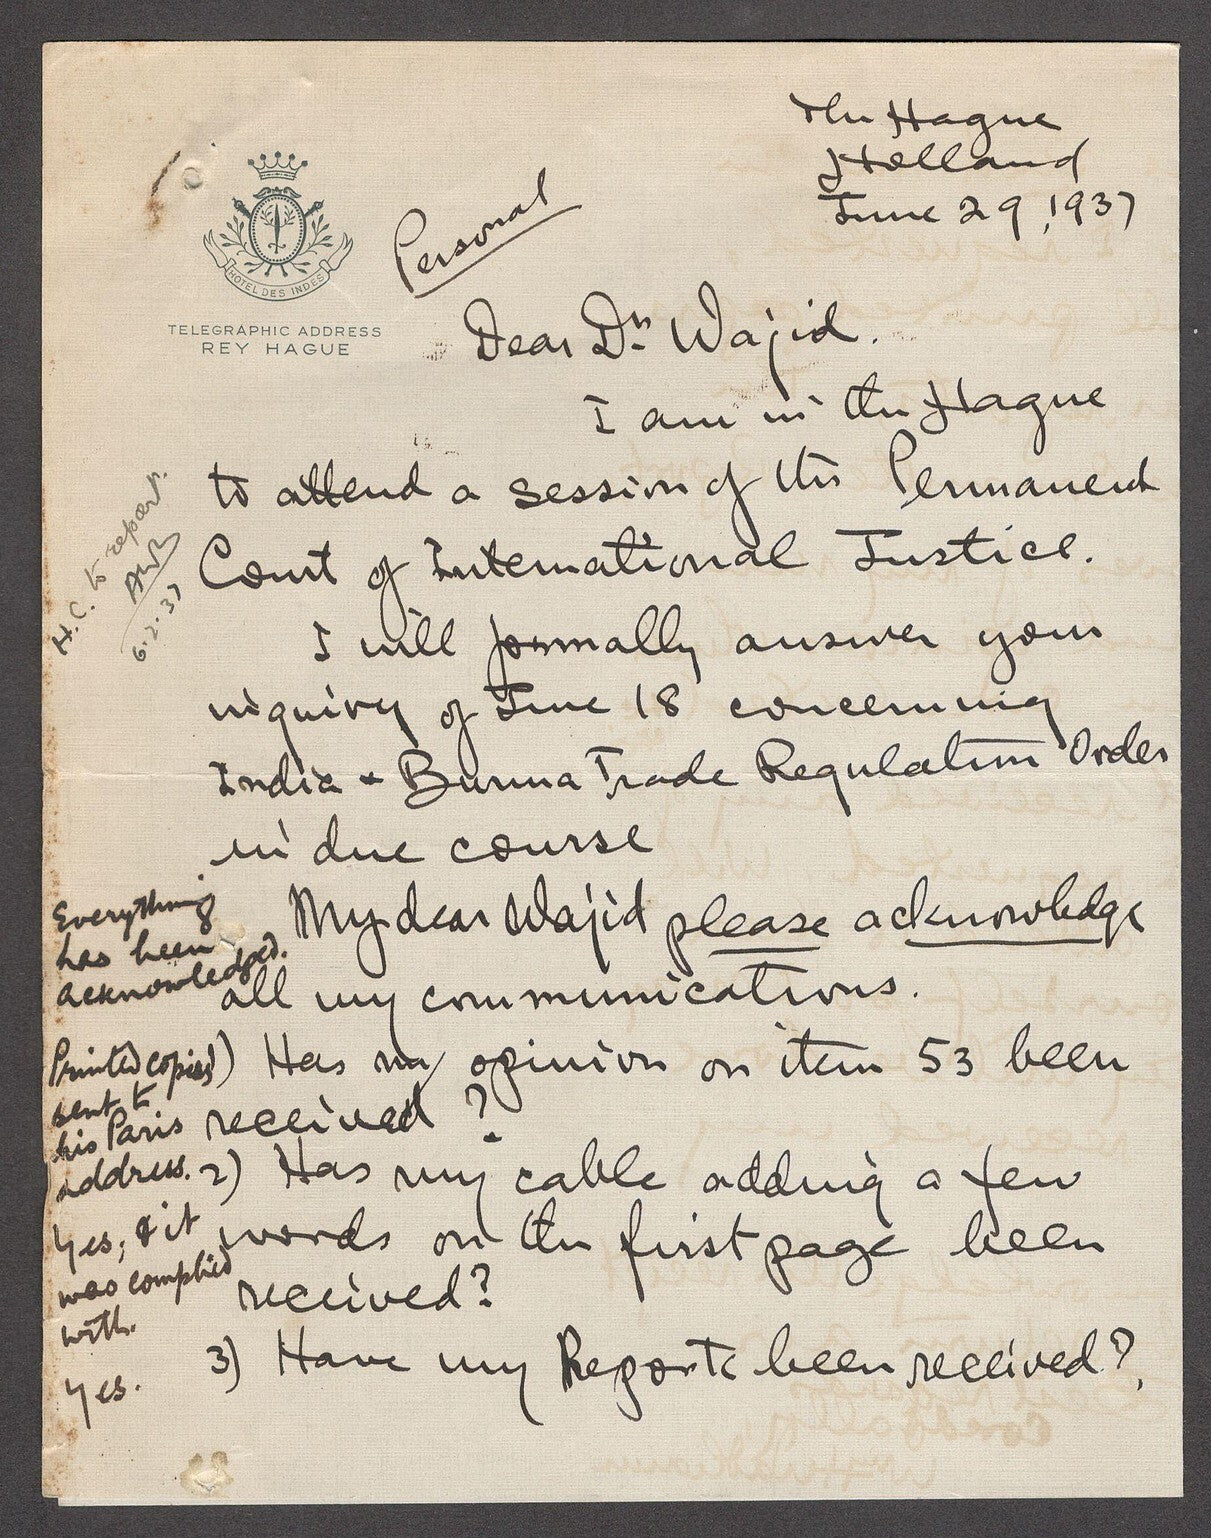 The Hague
Holland
June 29, 1937
HOTEL DES INDES
TELEGRAPHIC ADDRESS
REY HAGUE
Personal
Dear Dr. Wajid.
I am in the Hague
to attend a session of the Permanent
Court of International Justice.
I will formally answer your
inquiry of June 18 concerning
India & Burma Trade Regulation Order
in due course
My dear Wajid please acknowledge
all my communications.
1) Has my opinion on item 53 been
received?
2) Has my cable adding a few
words on the first page been
received?
3) Have my Reports been received?
H.C. to report.
6.2.37
Everything
has been
acknowledged.
Printed copies
sent to
his Paris
address.
Yes, & it
was complied
with.
Yes.